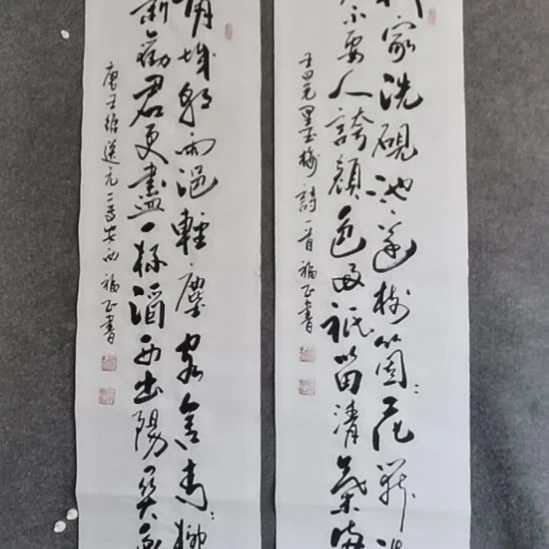 家洗硯池邊樹箇〻花開淡
不要人誇顏色好祇留清氣滿
王冕墨梅詩一首福正書
渭城朝雨浥輕塵客舍青〻柳
新勸君更盡一杯酒西出陽關無
唐王維送元二使安西福正書